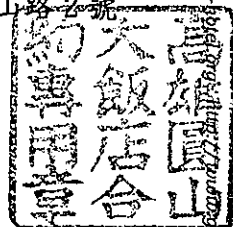 山路2號
高雄圓山
大飯店合
約專用章